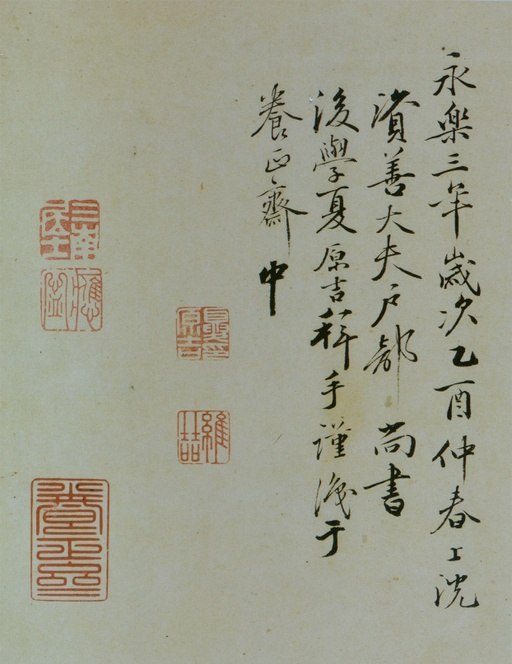 永樂三年歲次乙酉仲春上浣
資善大夫戶部 尚書
後學夏原吉手謹識于
養正齋中
維喆